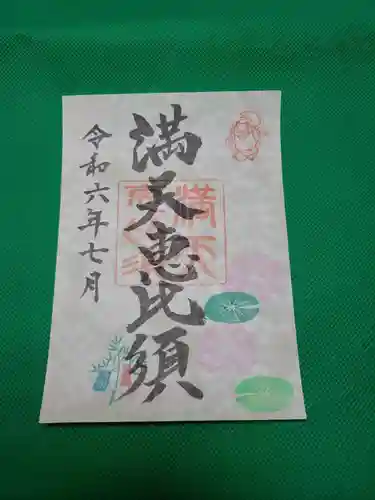 満天恵比須
令和六年七月